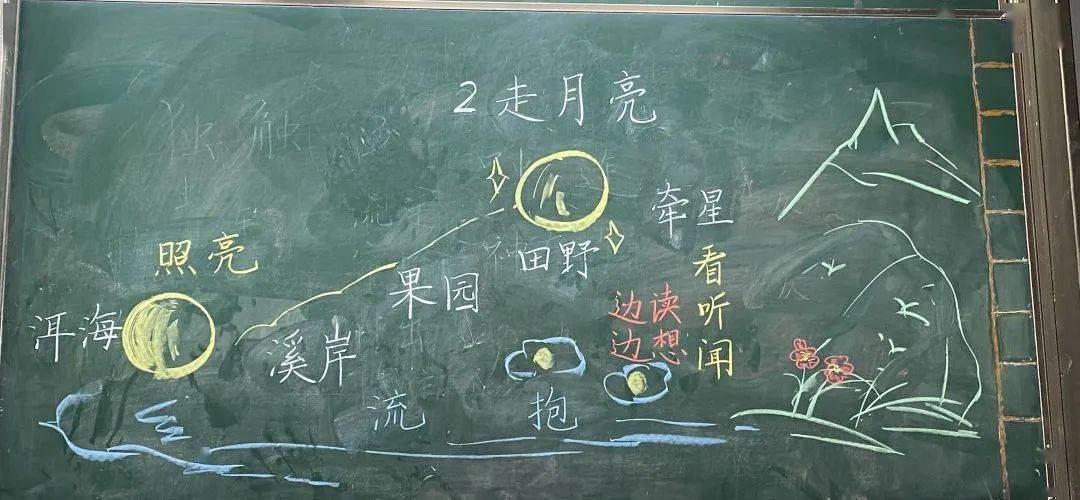 2走月亮
牵星
照亮
田野
看听闻
果园
边读
边想
洱海
溪岸
流
抱